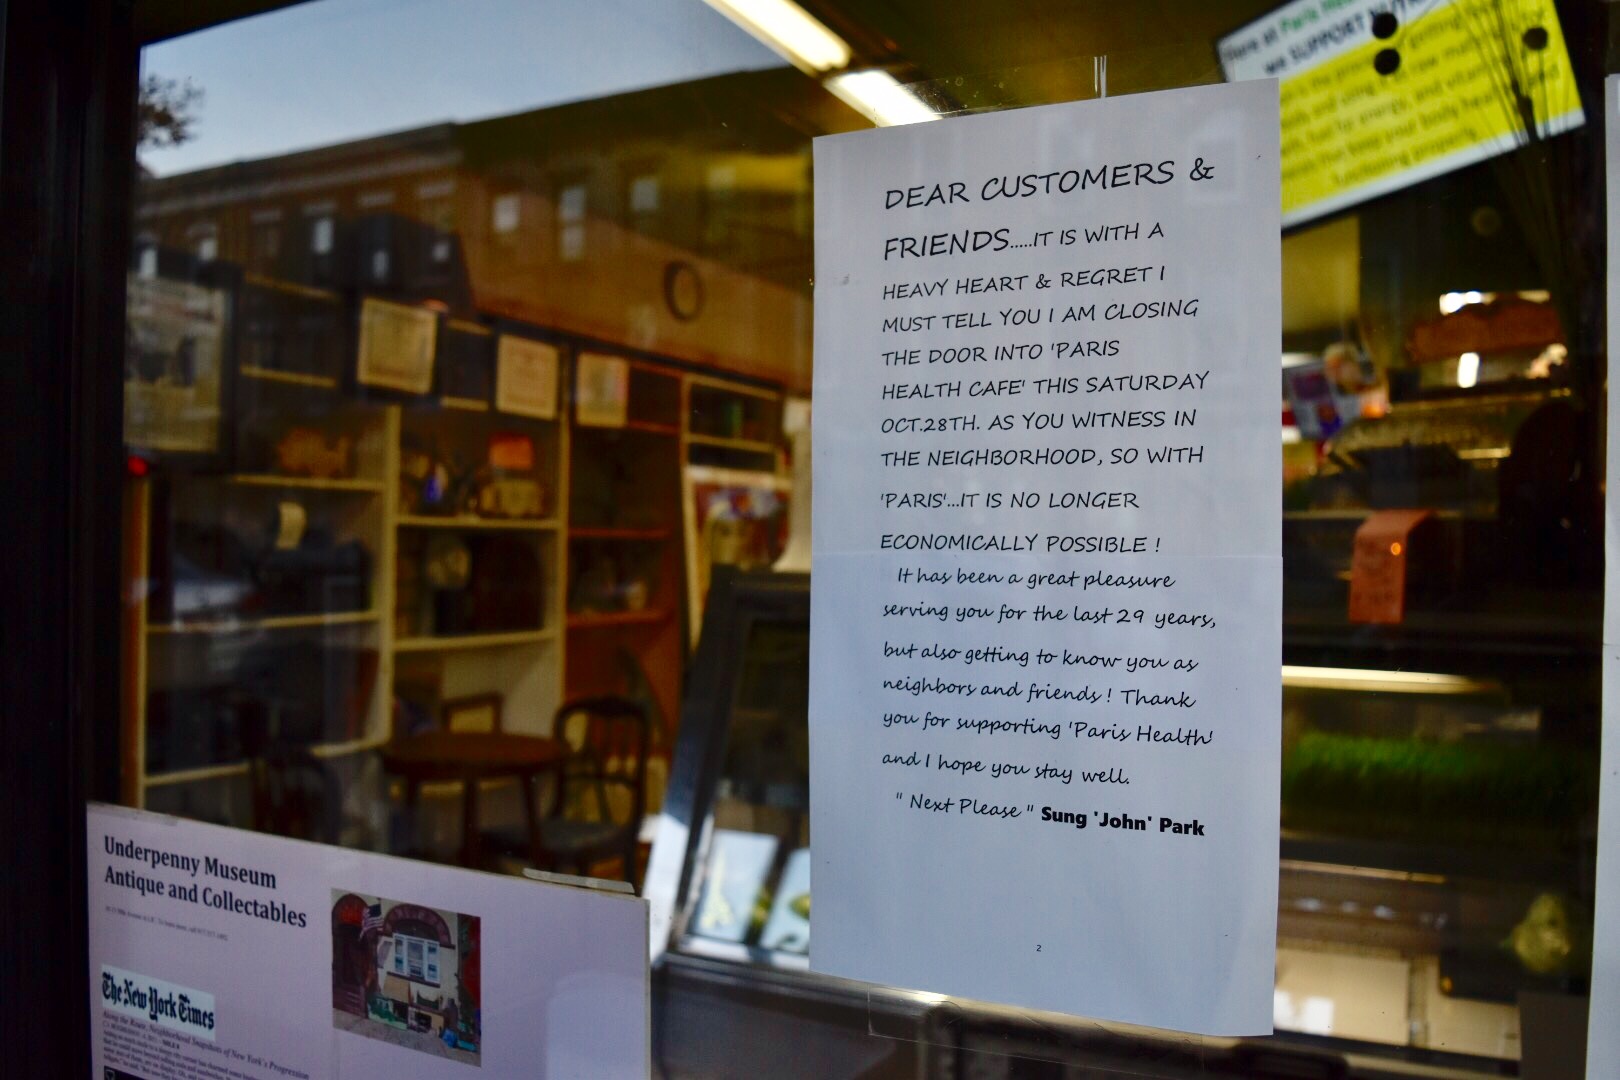 DEAR CUSTOMERS &
FRIENDS.....IT IS WITH A
HEAVY HEART & REGRET I
MUST TELL YOU I AM CLOSING
THE DOOR INTO 'PARIS
HEALTH CAFE' THIS SATURDAY
OCT.28TH. AS YOU WITNESS IN
THE NEIGHBORHOOD, SO WITH
'PARIS'...IT IS NO LONGER
ECONOMICALLY POSSIBLE !
It has been a great pleasure
serving you for the last 29 years,
but also getting to know you as
neighbors and friends ! Thank
you for supporting 'Paris Health'
and I hope you stay well.
" Next Please " Sung 'John' Park
2
Here at Paris
we SUPPORT
Underpenny Museum
Antique and Collectables
The New York Times
Along the Route, Neighborhood Snapshots of New York's Progression